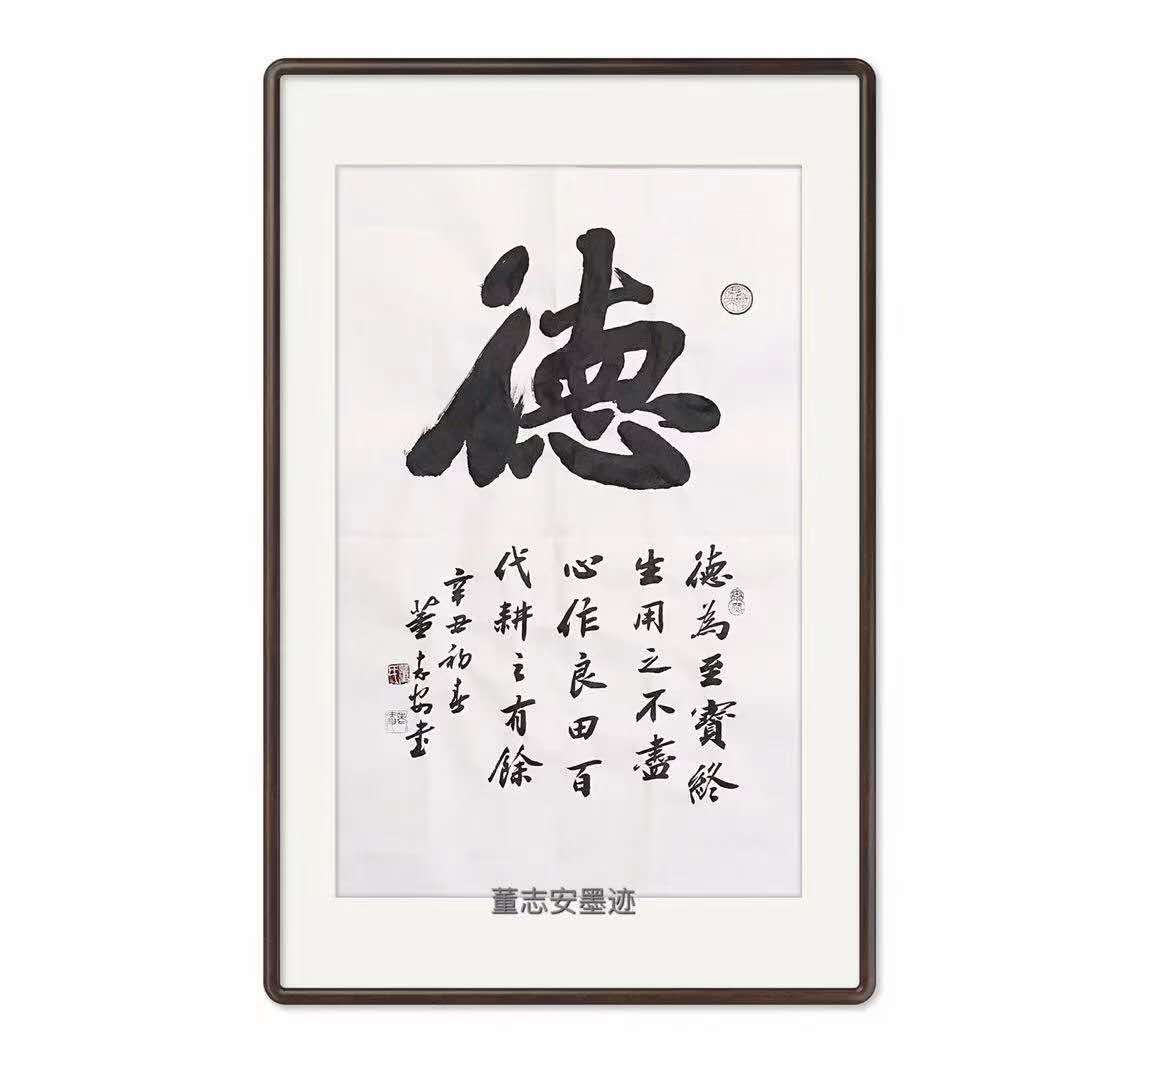 德
德為至寳終
生用之不盡
心作良田百
代耕之有餘
辛丑初春
董志安书
董志安墨迹